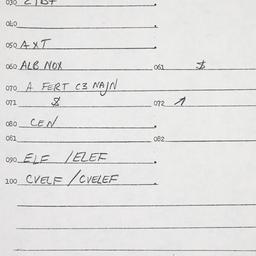 030
040
050 AXT
060 ALB NOX 061
070 A FERT C3 NAJN
071 072
080 CEN
081 082
090 ELF /ELEF
100 CVELF /CVELEF